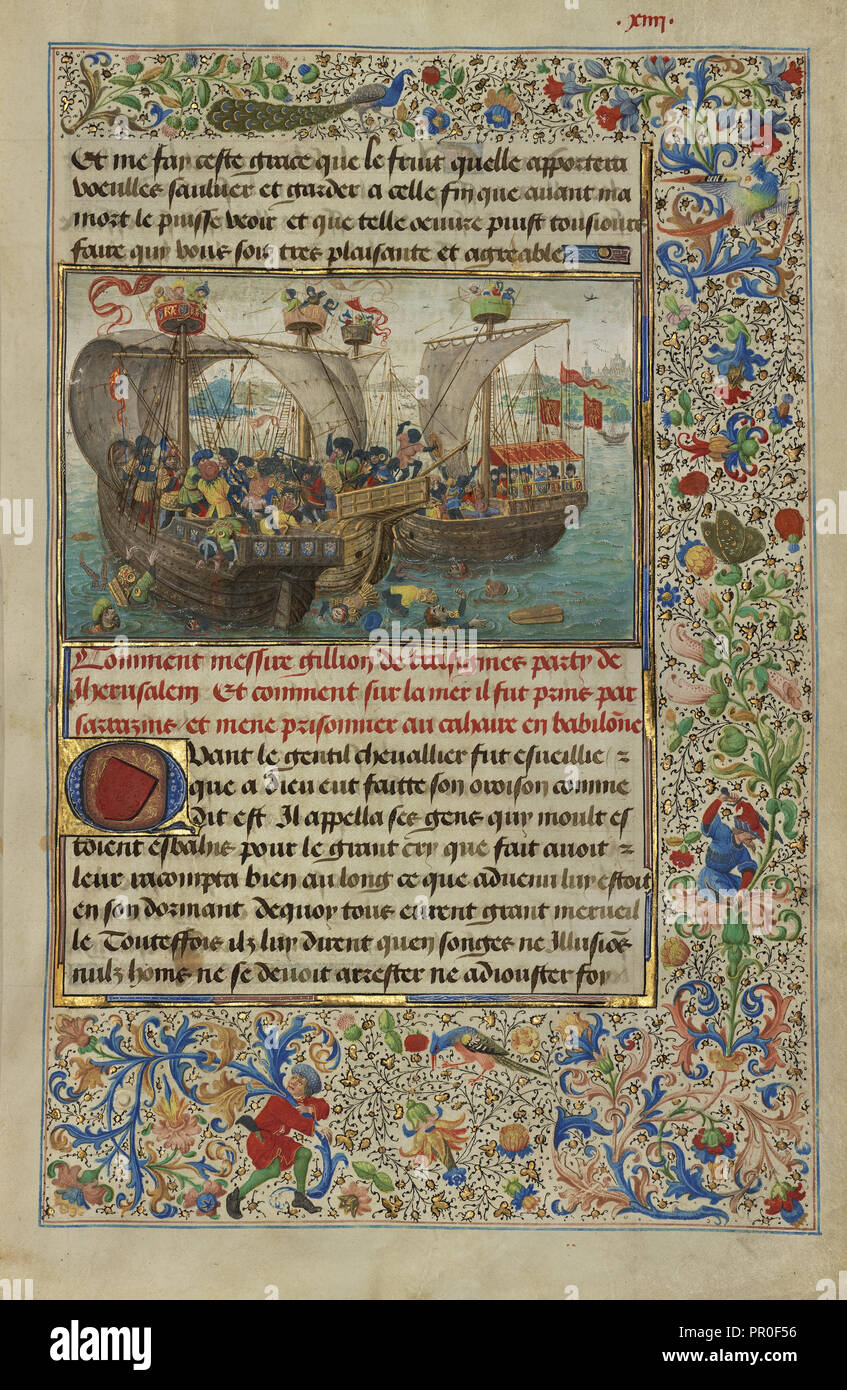 .xiiij.
Et me fay ceste grace que le fruit quelle apportera
voeulles sauluer et garder a celle fin que auant ma
mort le puisse veoir et que telle oeuure puist tousiours
faire quy vous soit tres plaisante et agreable
Comment messire gillion de trasignies party de
Iherusalem Et comment sur la mer il fut prins par
sarrazins et mene prisonnier au cahaire en babilone
Quant le gentil cheuallier fut esueillie z
que a dieu eut faitte son oroison comme
dit est Il appella ses gens quy moult es
toient esbahis pour le grant cry que fait auoit z
leur racompta bien au long ce que aduenu luy estoit
en son dormant dequoy tous eurent grant merueil
le Touteffois ilz luy dirent quen songes ne Illusions
nulz homs ne se deuoit arrester ne adiouster foy
a
alamy stock photo
PR0F56
www.alamy.com